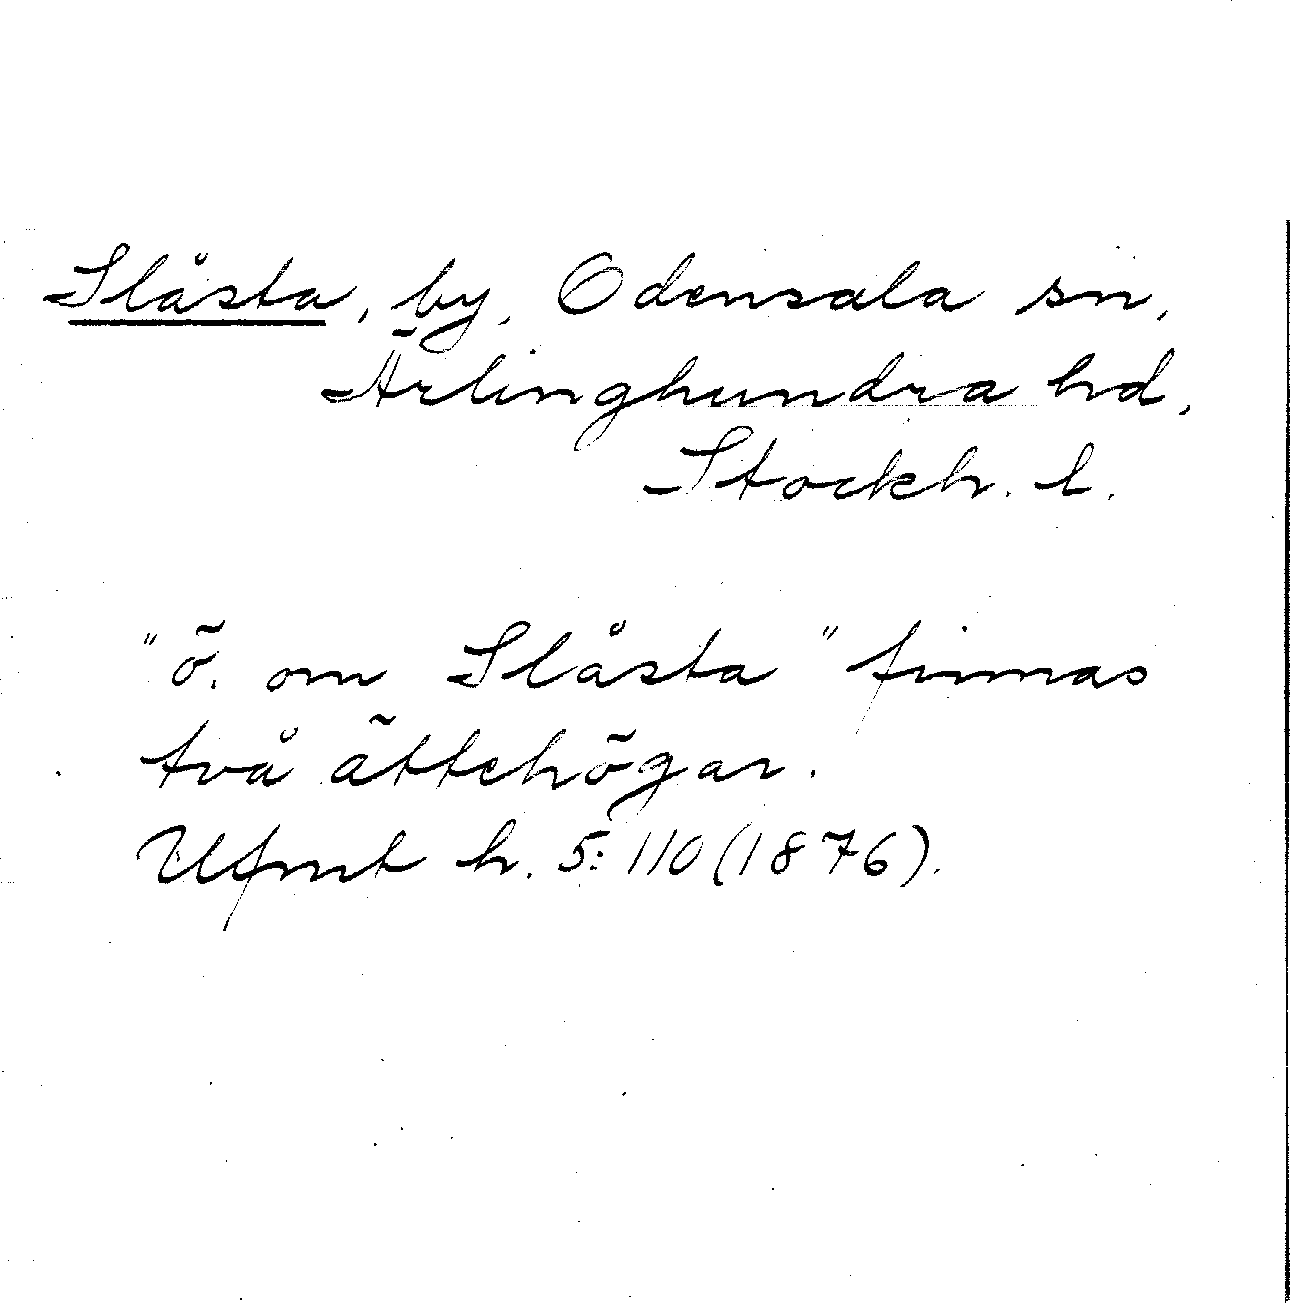 Slåsta, by, Odensala sn,
Ärlinghundra hd,
Stockh. l.
"ö. om Slåsta" finnas
två ättehögar.
Ufmt h. 5: 110 (1876).